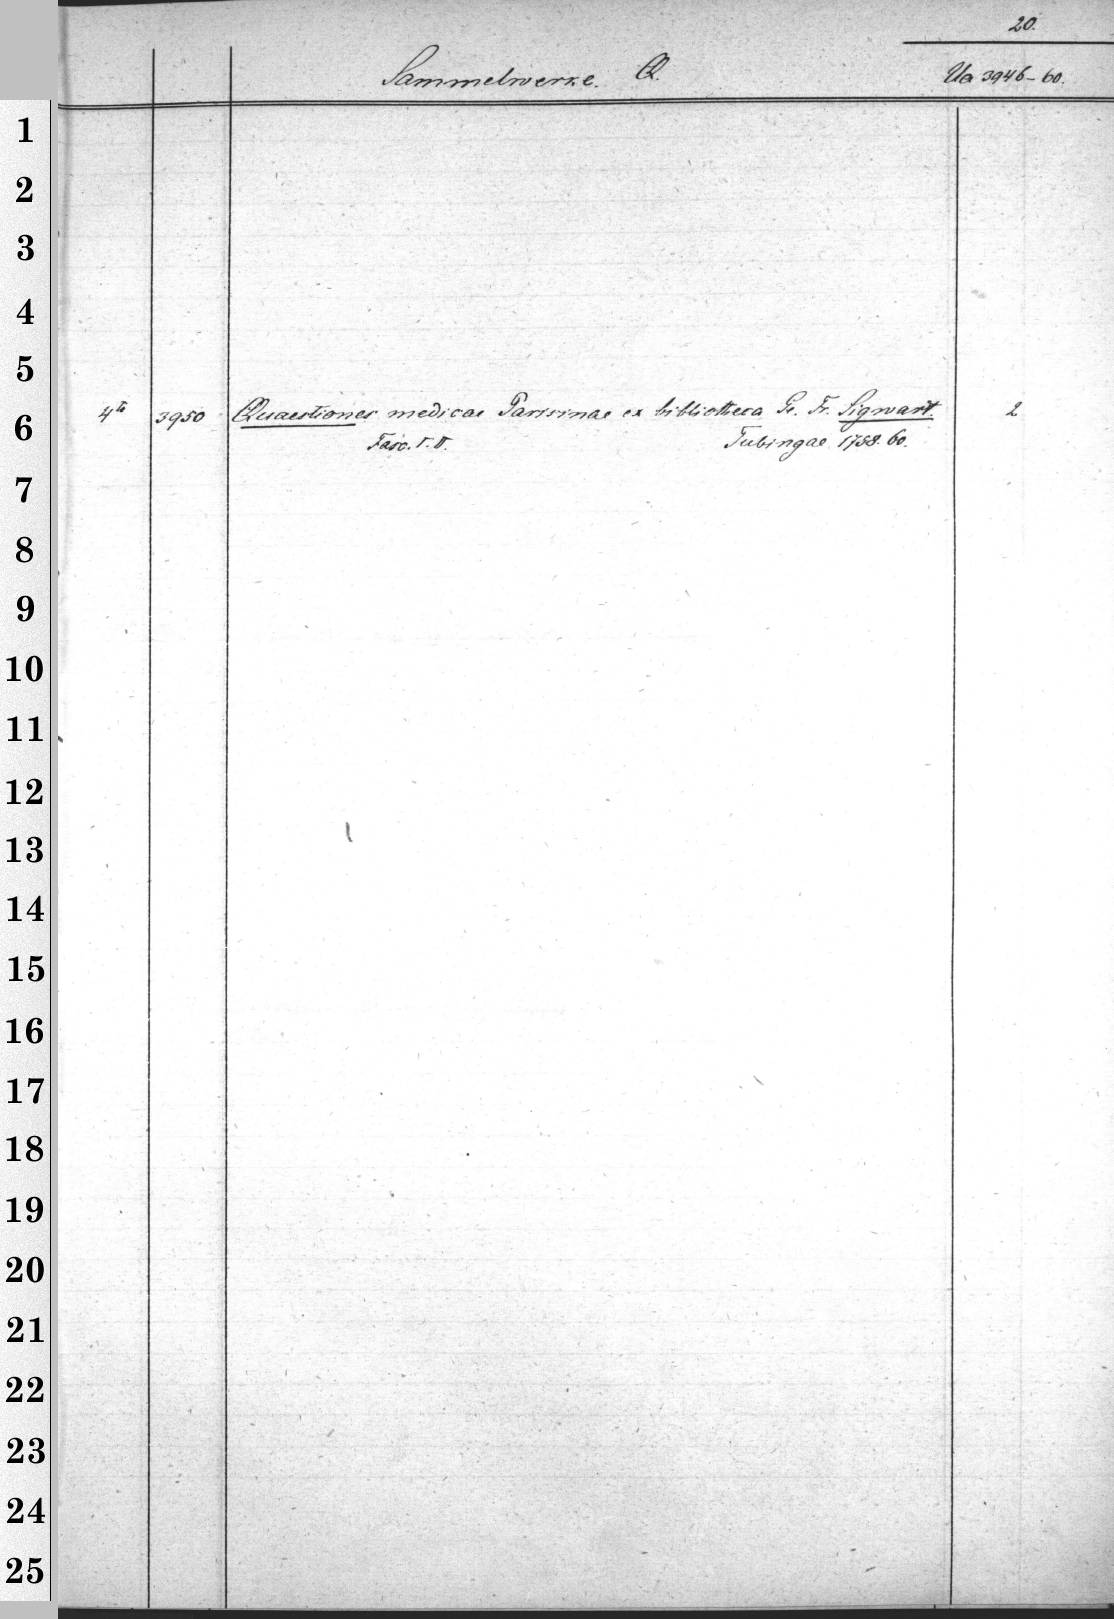 20.
Sammelwerke. Q. Ua 3946-60.
1
2
3
4
5
6
4to 3950 Quaestiones medicae Parisinae ex bibliotheca Ge. Fr. Sigwart. 2
Fasc. I. II. Tubingae 1758. 60.
7
8
9
10
11
12
13
14
15
16
17
18
19
20
21
22
23
24
25